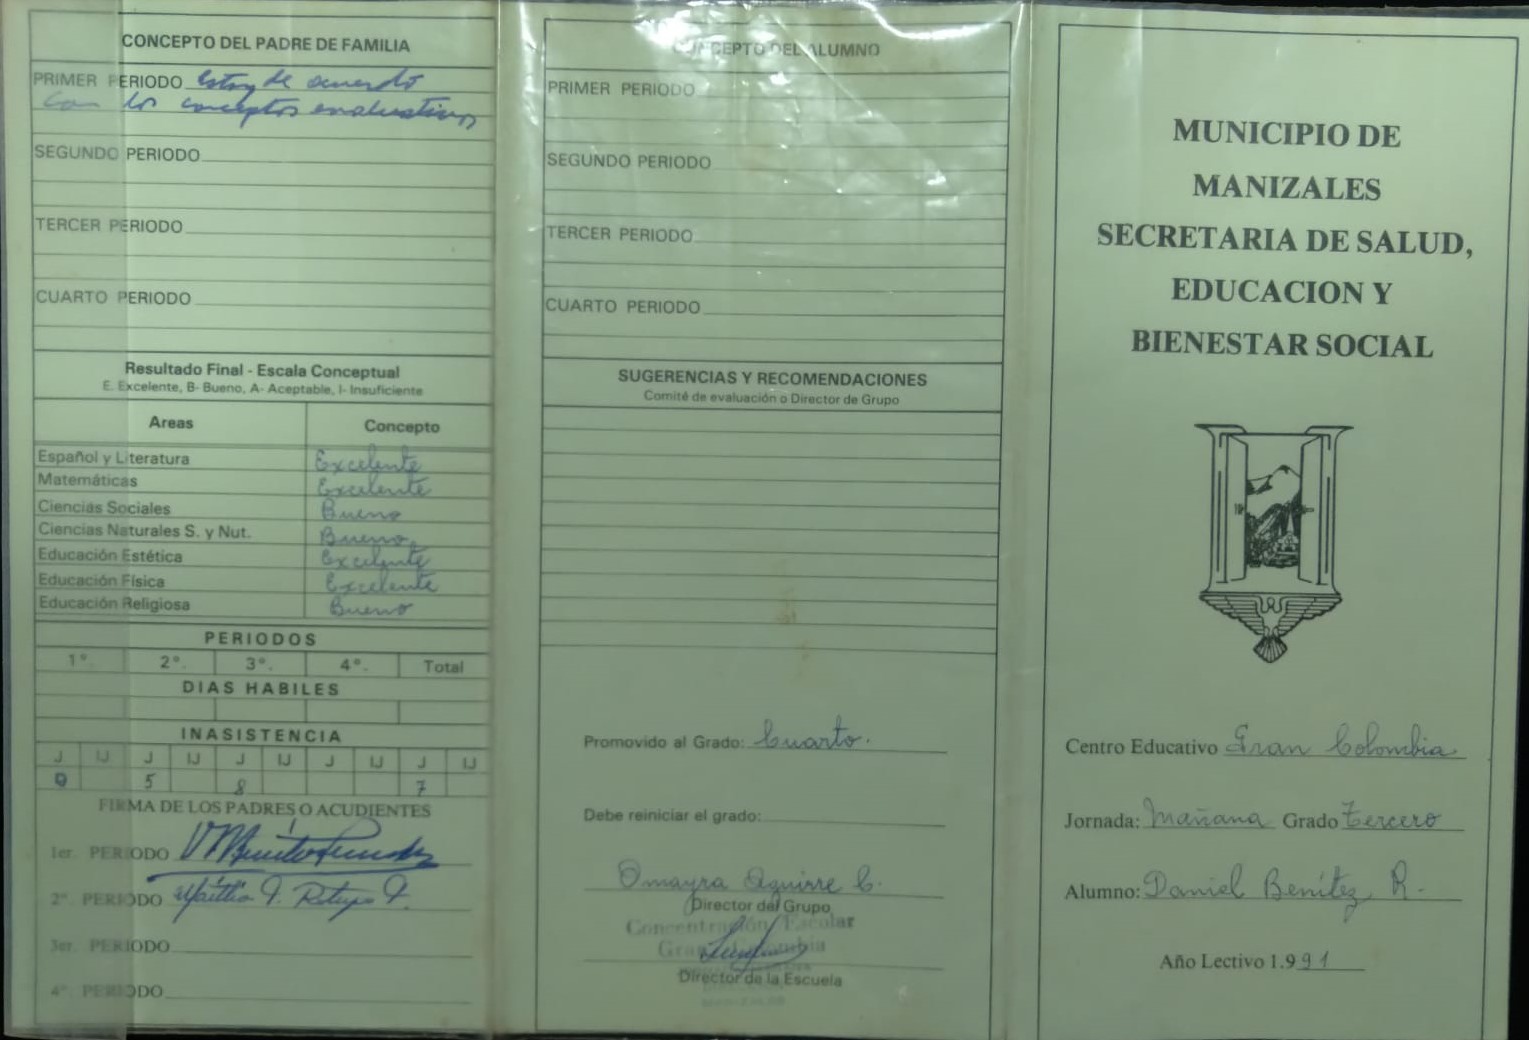 CONCEPTO DEL PADRE DE FAMILIA
PRIMER PERIODO Estoy de acuerdo
con los conceptos evaluativos
SEGUNDO PERIODO
TERCER PERIODO
CUARTO PERIODO
Resultado Final - Escala Conceptual
E. Excelente, B- Bueno, A- Aceptable, I- Insuficiente
Areas Concepto
Español y Literatura Excelente
Matemáticas Excelente
Ciencias Sociales Bueno
Ciencias Naturales S. y Nut. Bueno
Educación Estética Excelente
Educación Física Excelente
Educación Religiosa Bueno
PERIODOS
1°. 2°. 3°. 4°. Total
DIAS HABILES
INASISTENCIA
J IJ J IJ J IJ J IJ J IJ
0 5 8 7
FIRMA DE LOS PADRES O ACUDIENTES
1er. PERIODO
2°. PERIODO
3er. PERIODO
4°. PERIODO
CONCEPTO DEL ALUMNO
PRIMER PERIODO
SEGUNDO PERIODO
TERCER PERIODO
CUARTO PERIODO
SUGERENCIAS Y RECOMENDACIONES
Comité de evaluación o Director de Grupo
Promovido al Grado: Cuarto.
Debe reiniciar el grado:
Omayra Aguirre C.
Director del Grupo
Concentración Escolar
Gran Colombia
Director de la Escuela
MUNICIPIO DE
MANIZALES
SECRETARIA DE SALUD,
EDUCACION Y
BIENESTAR SOCIAL
Centro Educativo Gran Colombia
Jornada: Mañana Grado Tercero
Alumno: Daniel Benítez R.
Año Lectivo 1.991